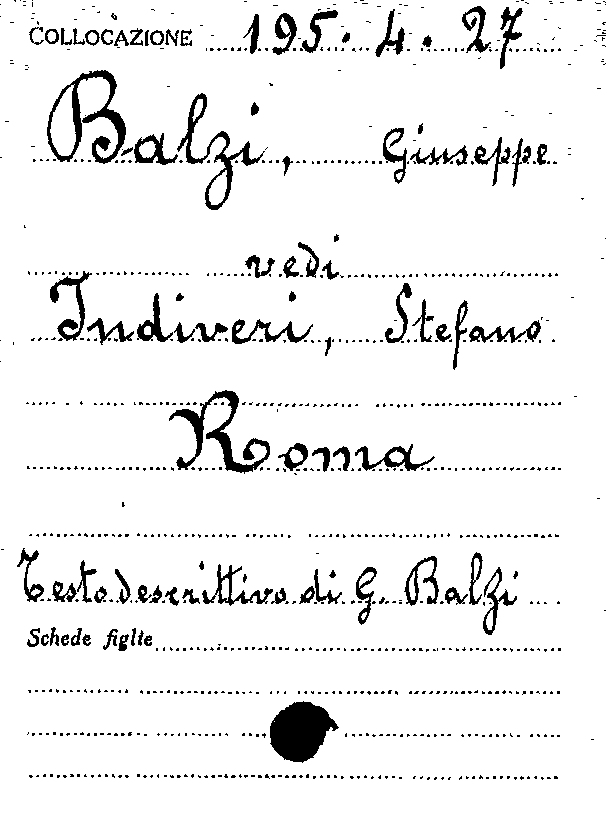 COLLOCAZIONE 195. 4. 27
Balzi, Giuseppe
vedi
Indiveri, Stefano
Roma
Testo descrittivo di G. Balzi
Schede figlie